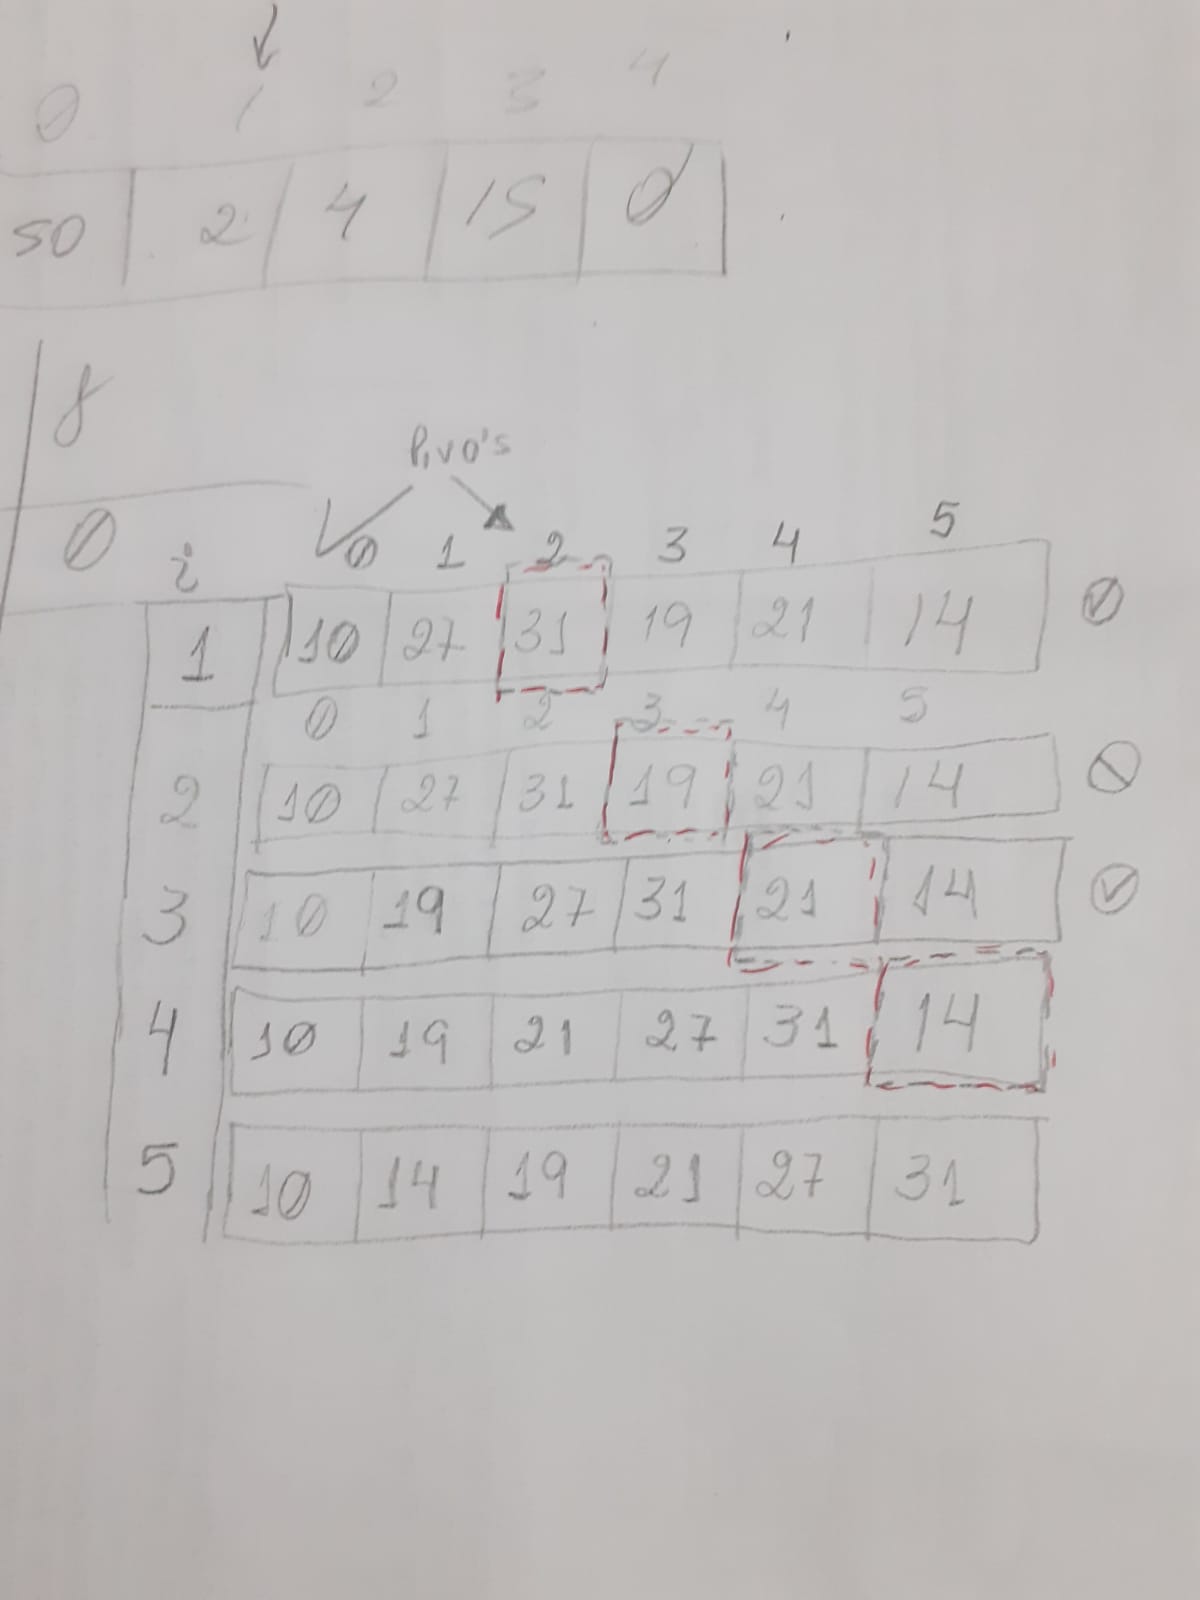 0 1 2 3 4
50 2 4 15 0
8
Pivo's
0 i 0 1 2 3 4 5
1 10 27 31 19 21 14
0 1 2 3 4 5
2 10 27 31 19 21 14
3 10 19 27 31 21 14
4 10 19 21 27 31 14
5 10 14 19 21 27 31